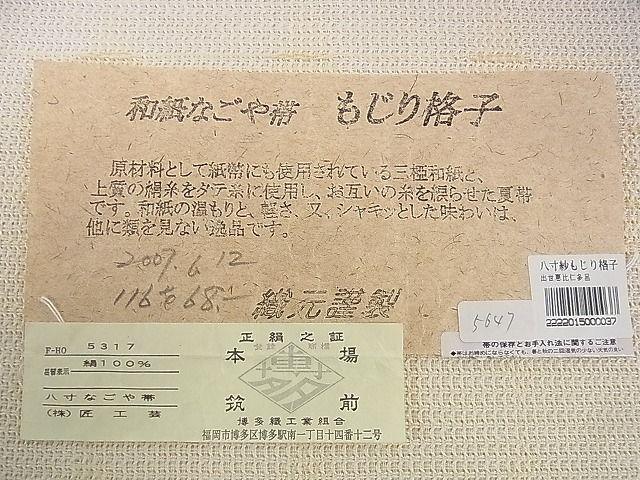 和紙なごや帯 もじり格子
原材料として紙幣にも使用されている三椏和紙と、
上質の絹糸をタテ糸に使用し、お互いの糸を捩らせた夏帯
です。和紙の温もりと、軽さ、又、シャキッとした味わいは、
他に類を見ない逸品です。
2007.6.12
116を68.-
織元謹製
八寸紗もじり格子
出世恵比仁多呂
2222015000037
5647
帯の保存とお手入れ法に関するご注意
正絹之証
F-HO 5317
絹100%
品質表示
八寸なごや帯
(株)匠工芸
本場
筑前
博多織工業組合
福岡市博多区博多駅南一丁目十四番十二号